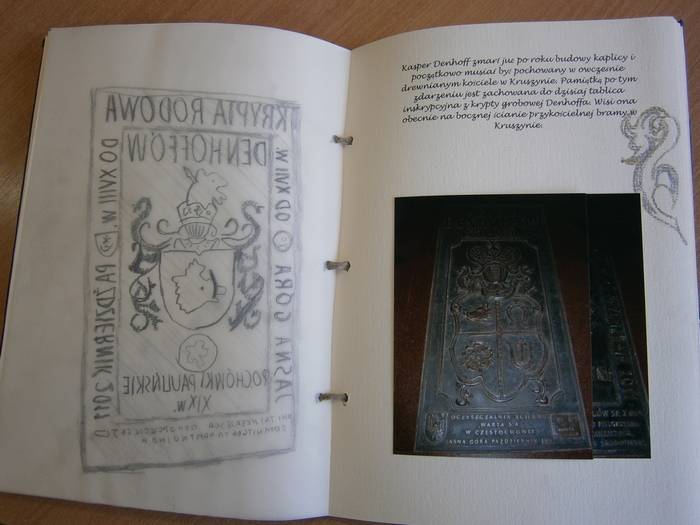 KRYPTA RODOWA
DENHOFFÓW
DO XVIII W.
PAŹDZIERNIK 2011
JASNA GÓRA
DO XVII W.
POCHÓWKI PAULIŃSKIE
XIX w.
Kasper Denhoff zmarł już po roku budowy kaplicy i
początkowo musiał być pochowany w ówcześnie
drewnianym kościele w Kruszynie. Pamiątką po tym
zdarzeniu jest zachowana do dzisiaj tablica
inskrypcyjna z krypty grobowej Denhoffa. Wisi ona
obecnie na bocznej ścianie przykościelnej bramy w
Kruszynie.
OCZYSZCZALNIA ŚCIEKÓW
WARTA S.A.
W CZĘSTOCHOWIE
JASNA GÓRA PAŹDZIERNIK